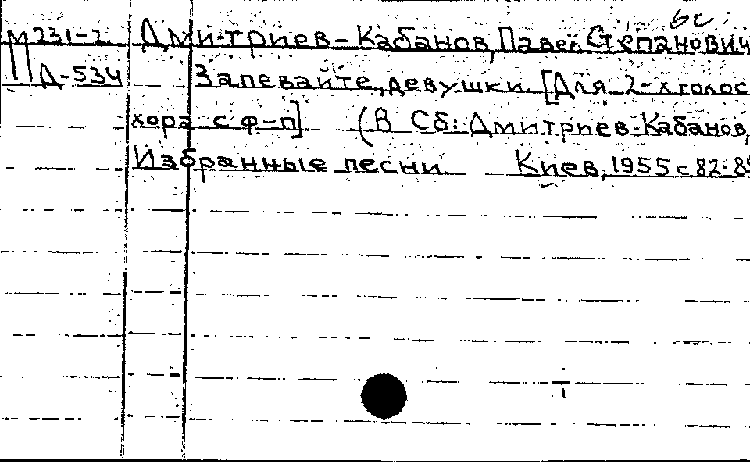 бс
М231-2 Дмитриев-Кабанов, Павел Степанович
Д-534 Запевайте, девушки. [Для 2-х голос
хора с ф-п] (В Сб: Дмитриев-Кабанов,
Избранные песни Киев, 1955 с 82-85